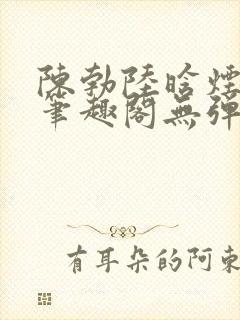 陳勃陸晗煙
筆趣閣無彈
有耳朵的阿東